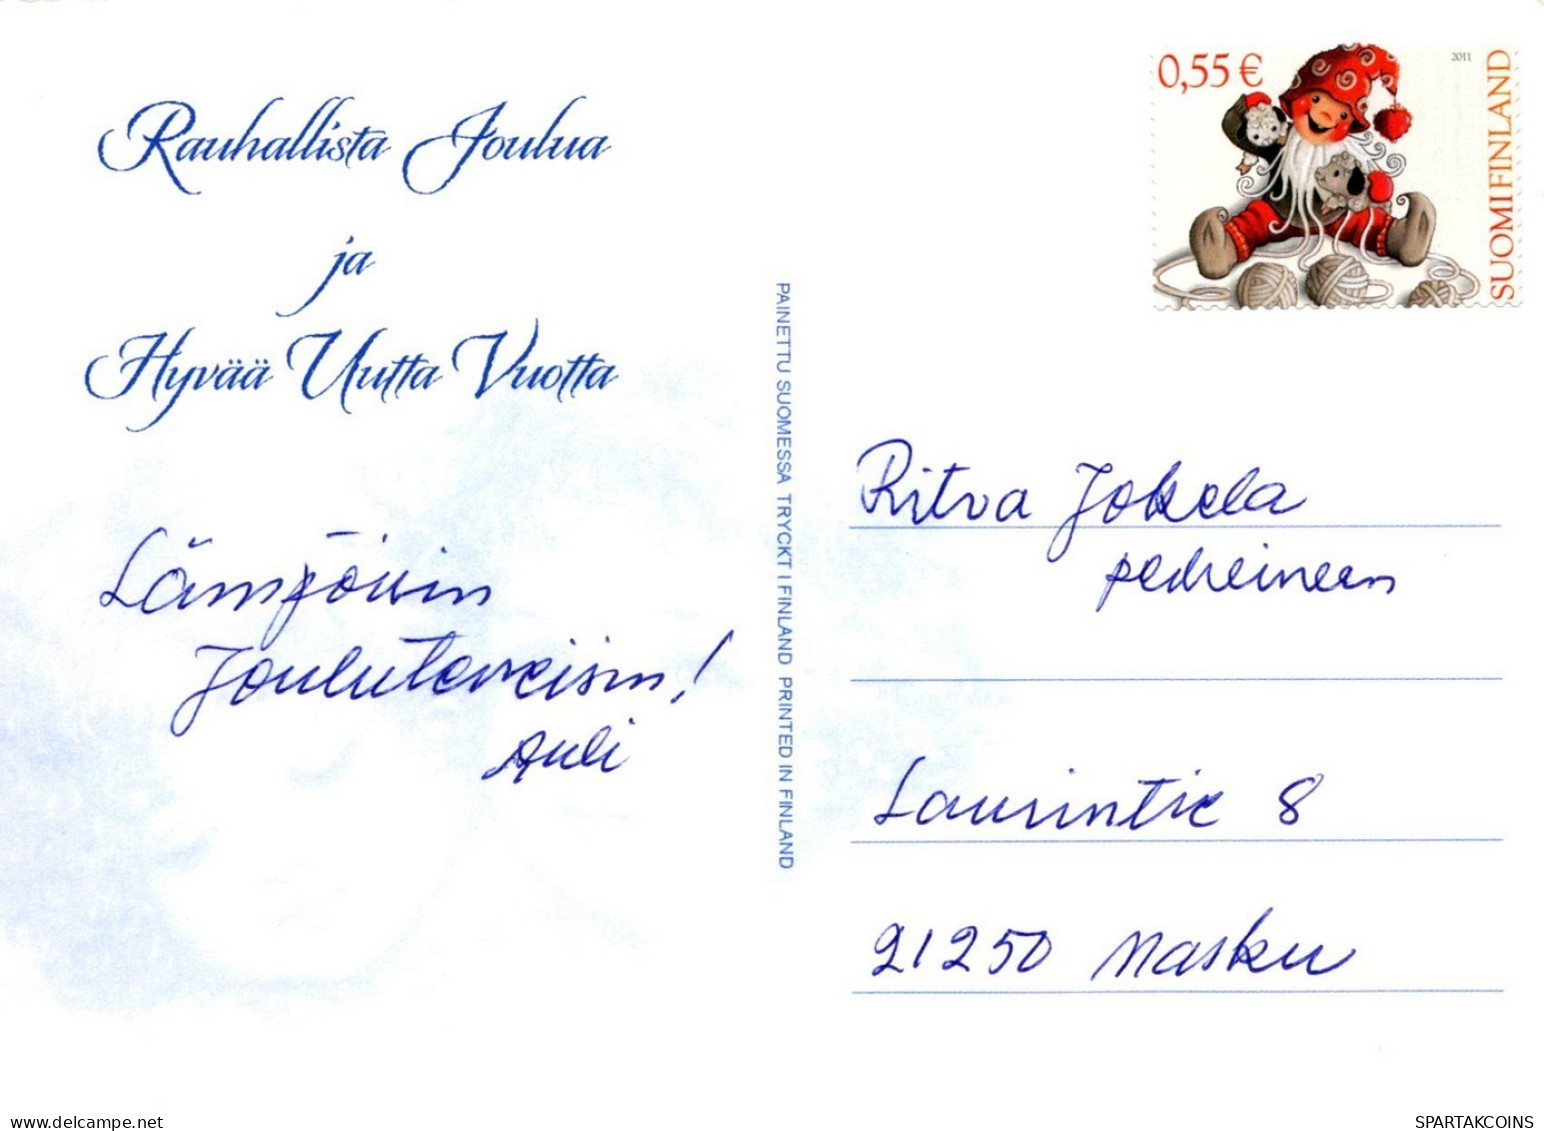 Rauhallista Joulua
ja
Hyvää Uutta Vuotta
Lämpöisin
Jouluterveisin!
Auli
PAINETTU SUOMESSA TRYCKT I FINLAND PRINTED IN FINLAND
0,55 €
2011
SUOMI FINLAND
Ritva Jokela
perheineen
Laurintie 8
21250 Masku
delcampe.net
SPARTAKCOINS